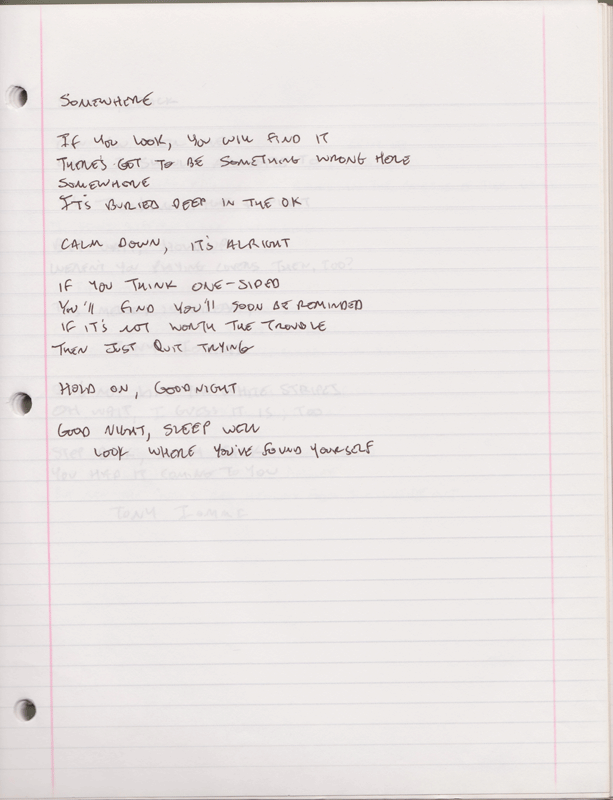 SOMEWHERE
IF YOU LOOK, YOU WILL FIND IT
THERE'S GOT TO BE SOMETHING WRONG HERE
SOMEWHERE
IT'S BURIED DEEP IN THE OK
CALM DOWN, IT'S ALRIGHT
IF YOU THINK ONE-SIDED
YOU'LL FIND YOU'LL SOON BE REMINDED
IF IT'S NOT WORTH THE TROUBLE
THEN JUST QUIT TRYING
HOLD ON, GOODNIGHT
GOOD NIGHT, SLEEP WELL
LOOK WHERE YOU'VE FOUND YOURSELF
YOU HAD IT COMING TO YOU